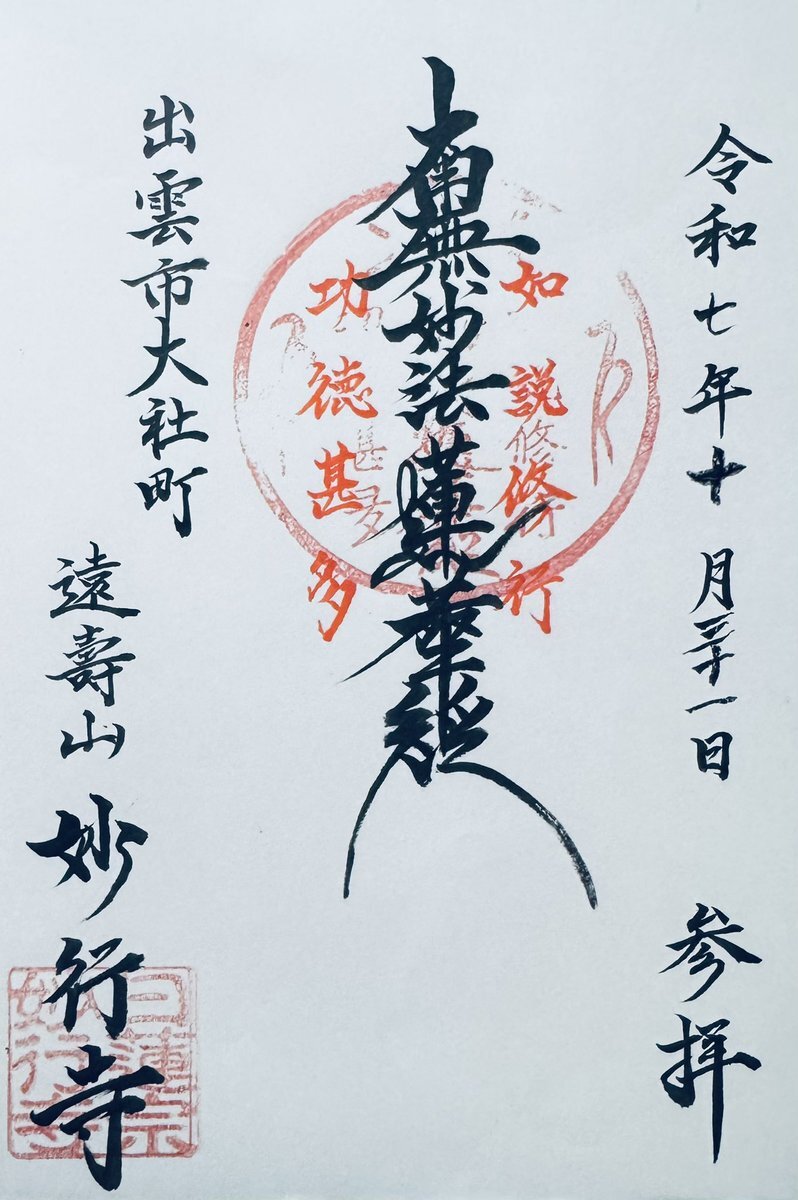 令和七年十月三十一日 参拝
如説修行
南無妙法蓮華経
功徳甚多
出雲市大社町
遠壽山 妙行寺
日蓮宗
妙行寺